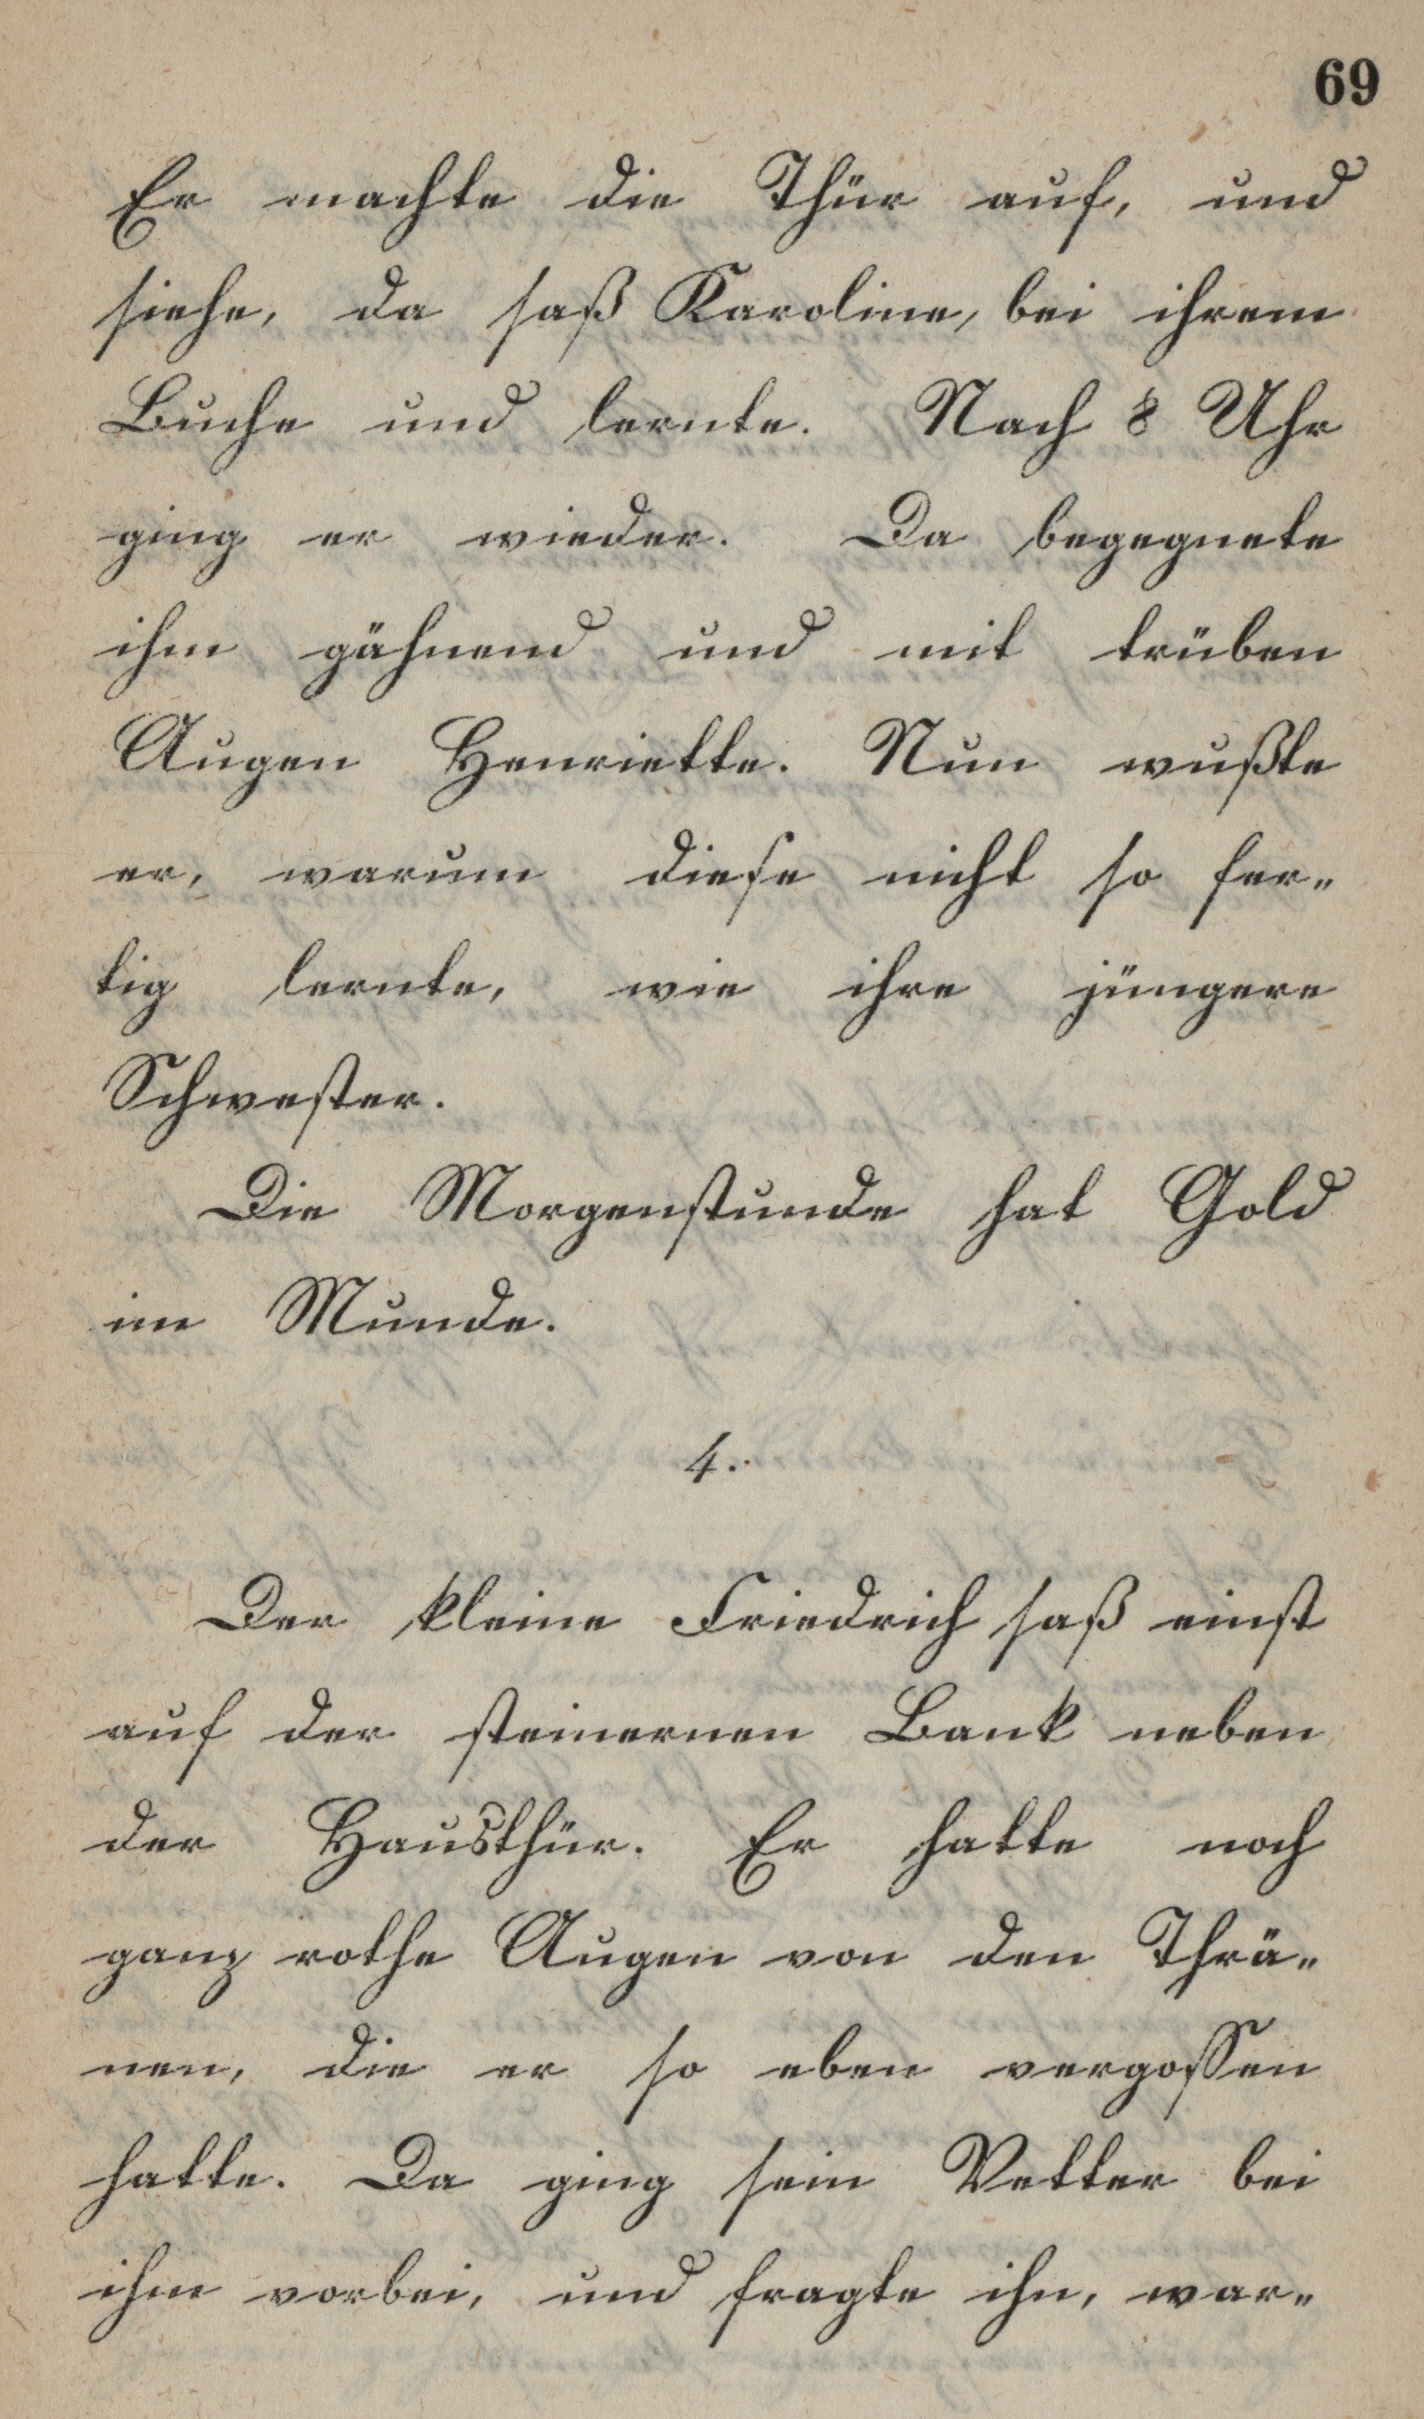 69
Er machte die Thür auf, und
siehe, da saß Karoline, bei ihrem
Buche und lernte. Nach 8 Uhr
ging er wieder. Da begegnete
ihm gähnend und mit trüben
Augen Henriette. Nun wußte
er, warum diese nicht so fer-
tig lernte, wie ihre jüngere
Schwester.
Die Morgenstunde hat Gold
im Munde.
4.
Der kleine Friedrich saß einst
auf der steinernen Bank neben
der Hausthür. Er hatte noch
ganz rothe Augen von den Thrä-
nen, die er so eben vergossen
hatte. Da ging sein Vetter bei
ihm vorbei, und fragte ihn, war-